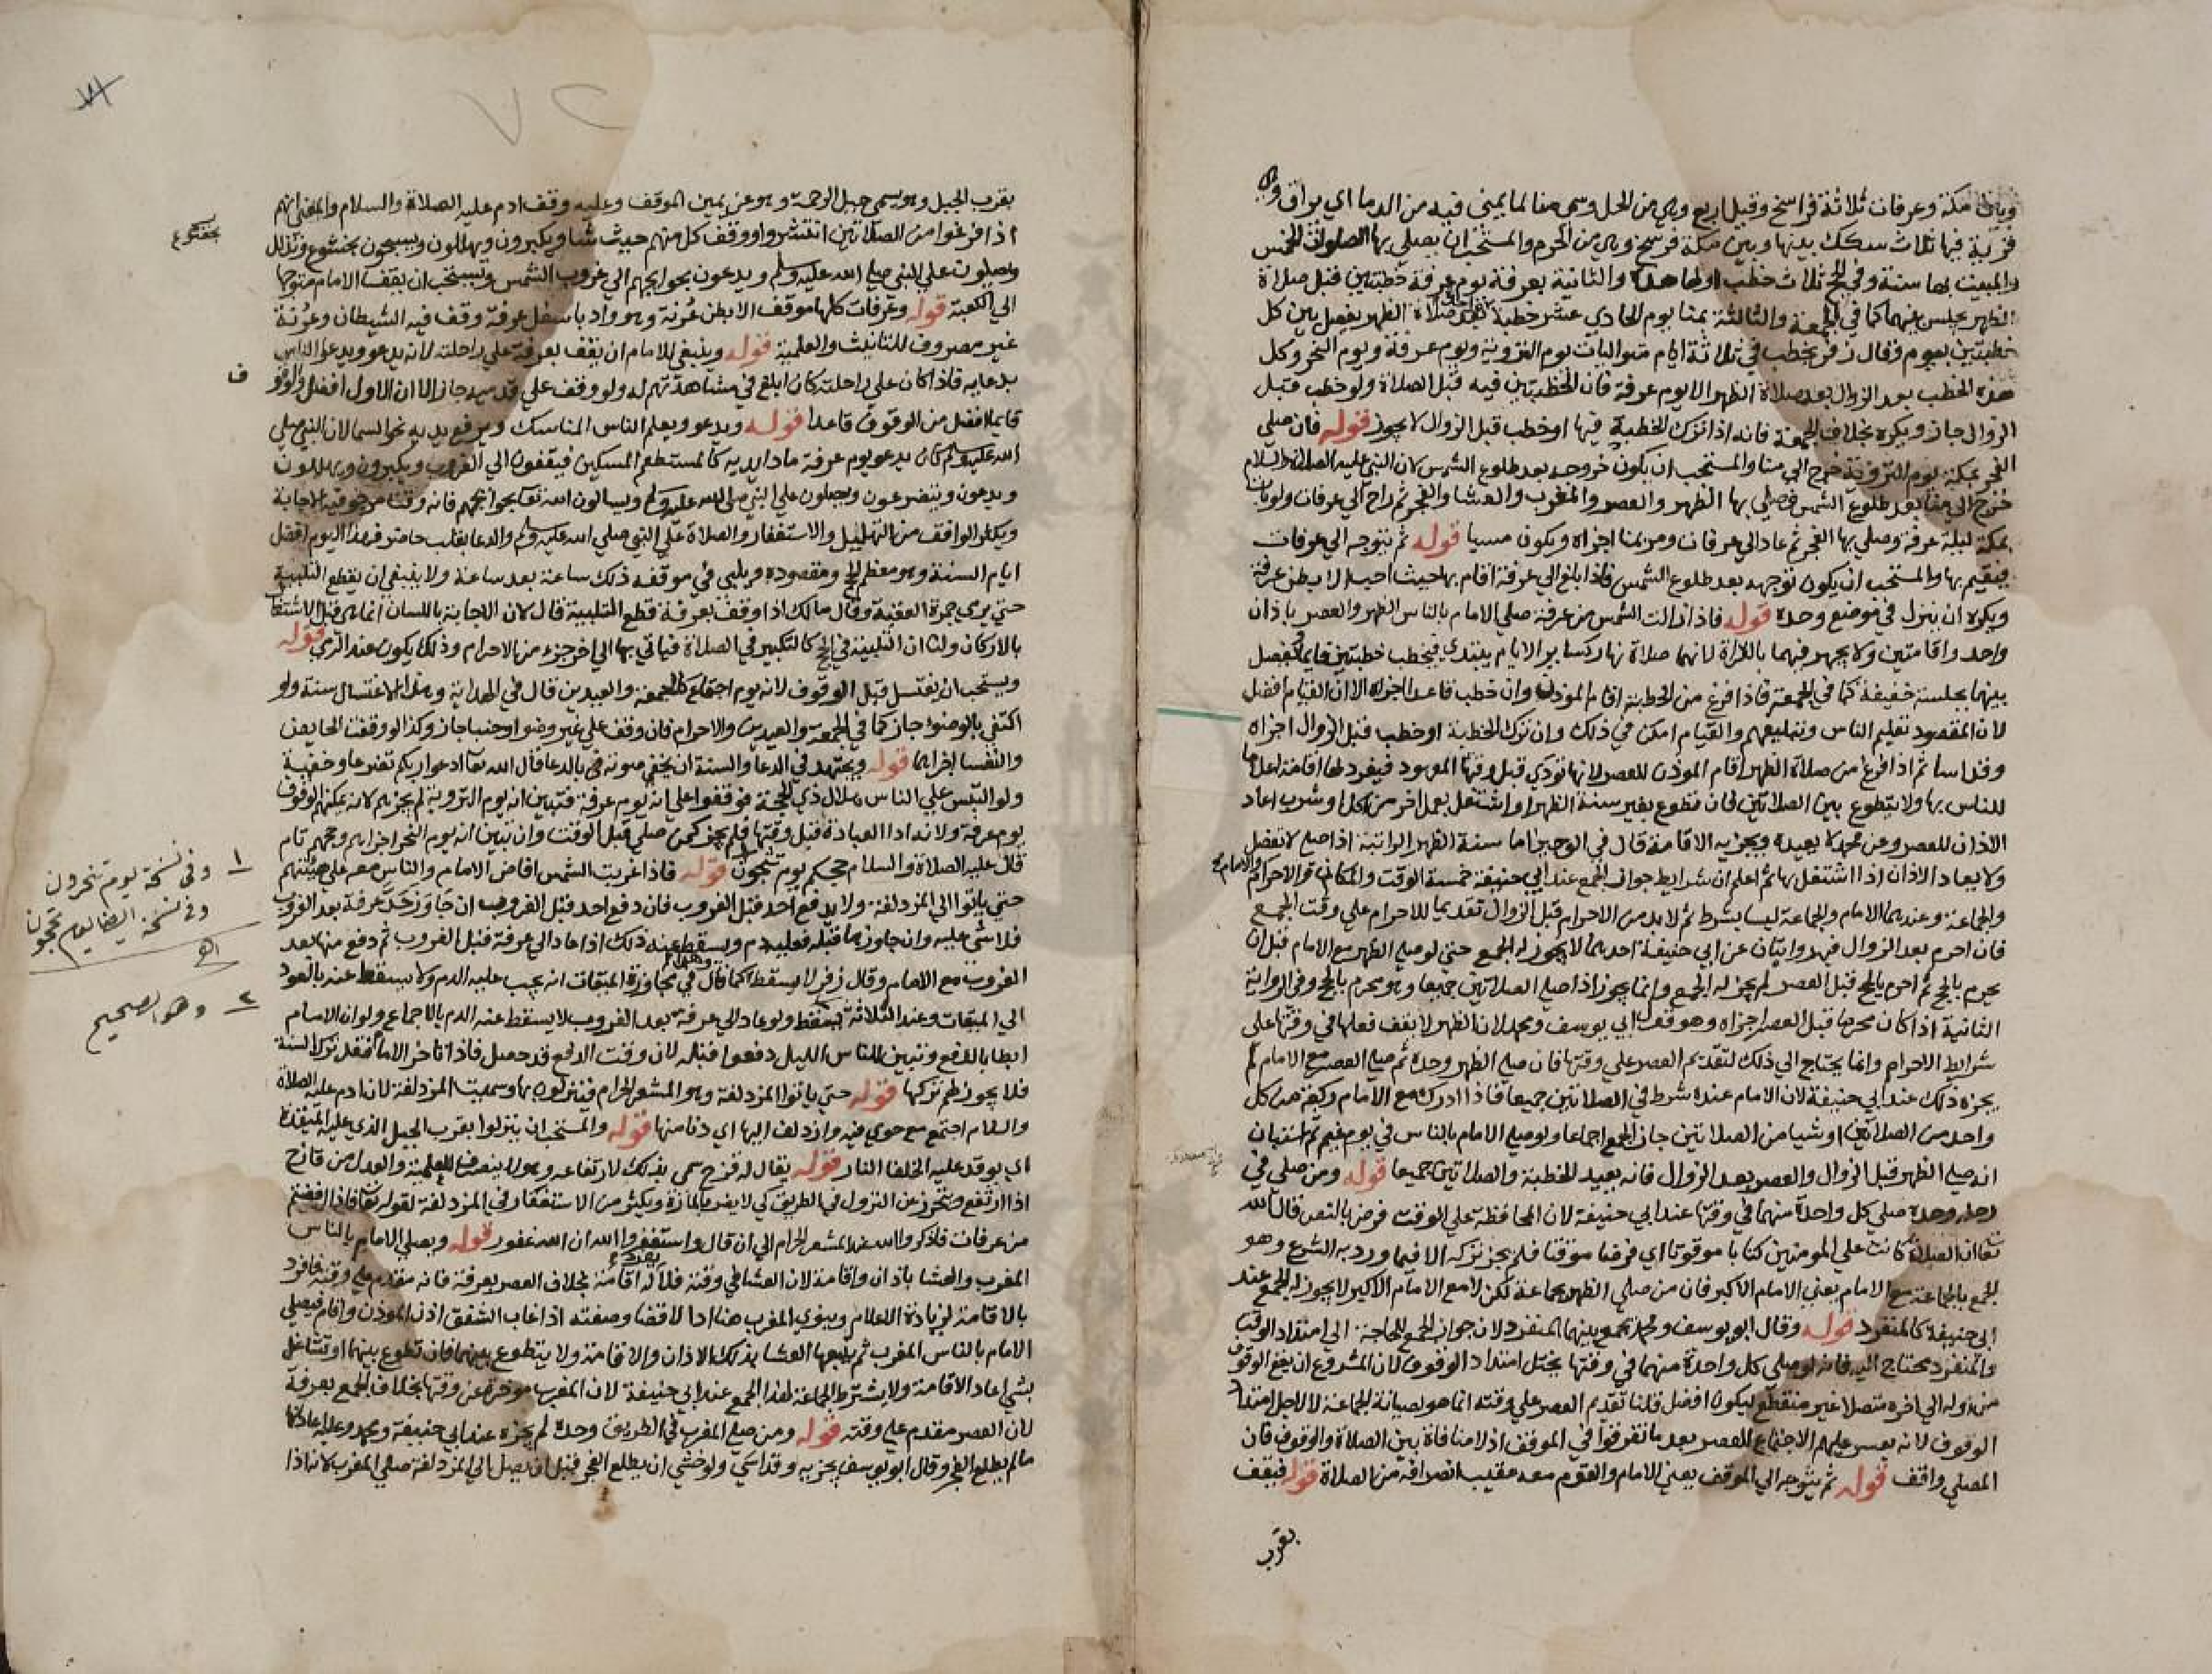 وبين مكة وعرفات ثلاثة فراسخ وقيل اربع وهي من الحل وسمي منا لما يمنى فيه من الدما اي يراق وهي
قرية فيها ثلاث سكك بينها وبين مكة فرسخ وهي من الحرم والمستحب ان يصلي بها الصلوات الخمس
والمبيت بها سنة وفي الحج ثلاث خطب اولها هذه والثانية بعرفة يوم عرفة خطبتين قبل صلاة
الظهر يجلس بينهما كما في الجمعة والثالثة بمنا يوم الحادي عشر خطبة صلاة الظهر يفصل بين كل
خطبتين بيوم وقال زفر يخطب في ثلاثة ايام متواليات يوم التروية ويوم عرفة ويوم النحر وكل
هذه الخطب بعد الزوال بعد صلاة الظهر الا يوم عرفة فان الخطبتين فيه قبل الصلاة ولو خطب قبل
الزوال جاز ويكره بخلاف الجمعة فانه اذا ترك الخطبة فيها او خطب قبل الزوال لا يجوز قوله فان صلي
الفجر بمكة يوم التروية خرج الي منا والمستحب ان يكون خروجه بعد طلوع الشمس لان النبي عليه الصلاة والسلام
خرج الي منا بعد طلوع الشمس فصلي بها الظهر والعصر والمغرب والعشا والفجر ثم راح الي عرفات ولو بات
بمكة ليلة عرفة وصلي بها الفجر ثم عاد الي عرفات ومر بمنا اجزاه ويكون مسيا قوله ثم يتوجه الي عرفات
فيقيم بها والمستحب ان يكون توجهه بعد طلوع الشمس فاذا بلغ الي عرفة اقام بها حيث احب الا بطن عرنة
ويكره ان ينزل في موضع وحده قوله فاذا زالت الشمس من عرفة صلي الامام بالناس الظهر والعصر باذان
واحد واقامتين ولا يجهر فيهما بالقراة لانهما صلاة نهار كساير الايام يبتدي فيخطب خطبتين قايما يفصل
بينهما بجلسة خفيفة كما في الجمعة فاذا فرغ من الخطبة اقام الموذن وان خطب قاعدا اجزاه الا ان القيام افضل
لان المقصود تعليم الناس وتبليغهم والقيام امكن في ذلك وان ترك الخطبة او خطب قبل الزوال اجزاه
وقد اسا ثم اذا فرغ من صلاة الظهر اقام الموذن للعصر لانها تودي قبل وقتها المعهود فيفرد لها اقامة اعلاما
للناس بها ولا يتطوع بين الصلاتين فان تطوع بغير سنة الظهر او اشتغل بعمل اخر من اكل او شرب اعاد
الاذان للعصر وعن محمد لا يعيده ويجزيه الاقامة قال في الوجيز اما سنة الظهر الراتبة اذا صلي لا تفصل
ولا يعاد الاذان اذا اشتغل بها ثم اعلم ان شرايط جواز الجمع عند ابي حنيفة خمسة الوقت والمكان والاحرام والامام
والجماعة وعندهما الامام والجماعة ليسا بشرط ثم لا بد من الاحرام قبل الزوال تقديما للاحرام علي وقت الجمع
فان احرم بعد الزوال فيه روايتان عن ابي حنيفة احدهما لا يجوز له الجمع حتي لو صلي الظهر مع الامام قبل ان
يحرم بالحج ثم احرم بالحج قبل العصر لم يجز له الجمع وانما يجوز اذا صلي الصلاتين جميعا وهو محرم بالحج وفي الرواية
الثانية اذا كان محرما قبل العصر اجزاه وهو قول ابي يوسف ومحمد لان الظهر لا يقف فعلها في وقتها علي
شرايط الاحرام وانما يحتاج الي ذلك لتقديم العصر علي وقتها فان صلي الظهر وحده ثم صلي العصر مع الامام لم
يجزه ذلك عند ابي حنيفة لان الامام عنده شرط في الصلاتين جميعا فاذا ادرك مع الامام ركعة من كل
واحد من الصلاتين او شيا من الصلاتين جاز الجمع اجماعا ولو صلي الامام بالناس في يوم غيم ثم استبان
انه صلي الظهر قبل الزوال والعصر بعد الزوال فانه يعيد الخطبة والصلاتين جميعا قوله ومن صلي في
رحله وحده صلي كل واحدة منهما في وقتها عند ابي حنيفة لان المحافظة علي الوقت فرض بالنص قال الله
تعا ان الصلاة كانت علي المومنين كتابا موقوتا اي فرضا موقتا فلم يجز تركه الا فيما ورد به الشرع وهو
الجمع بالجماعة مع الامام يعني الامام الاكبر فان من صلي الظهر بجماعة لكن لا مع الامام الاكبر لا يجوز له الجمع عند
ابي حنيفة كالمنفرد قوله وقال ابو يوسف ومحمد يجمع بينهما المنفرد لان جواز الجمع للحاجة الي امتداد الوقت
والمنفرد محتاج اليه فانه لو صلي كل واحدة منهما في وقتها يختل امتداد الوقوف لان المشروع ان يقع الوقوف
من اوله الي اخره متصلا غير منقطع ليكون افضل قلنا تقديم العصر علي وقته انما هو لصيانة الجماعة لا لاجل امتداد
الوقوف لانه يعسر عليهم الاجتماع للعصر بعد ما تفرقوا في الموقف اذ لا منافاة بين الصلاة والوقوف فان
المصلي واقف قوله ثم يتوجه الي الموقف يعني الامام والقوم معه عقيب انصرافه من الصلاة قوله فيقف
بقرب
بقرب الجبل وهو يسمي جبل الرحمة وهو عن يمين الموقف وعليه وقف ادم عليه الصلاة والسلام والمعني انهم
اذا فرغوا من الصلاتين انتشروا ووقف كل منهم حيث شا ويكبرون ويهللون ويسبحون بخشوع وتذلل
ويصلون علي النبي صلي الله عليه وسلم ويدعون بحوايجهم الي غروب الشمس ويستحب ان يقف الامام متوجها
الي الكعبة قوله وعرفات كلها موقف الا بطن عرنة وهو واد باسفل عرفة وقف فيه الشيطان وعرنة
غير مصروف للتانيث والعلمية قوله وينبغي للامام ان يقف بعرفة علي راحلته لانه يدعو ويدعوا الناس
بدعايه فاذا كان علي راحلته كان ابلغ في مشاهدتهم له ولو وقف علي قدميه جاز الا ان الاول افضل والوقوف
ف
قايما افضل من الوقوف قاعدا قوله ويدعو ويعلم الناس المناسك ويرفع يديه نحو السما لان النبي صلي
الله عليه وسلم كان يدعو يوم عرفة مادا يديه كالمستطعم المسكين فيقفون الي الغروب ويكبرون ويهللون
ويدعون ويتضرعون ويصلون علي النبي صلي الله عليه وسلم ويسالون الله تعا بحوايجهم فانه وقت مرجو فيه الاجابة
ويكثر الواقف من التهليل والاستغفار والصلاة علي النبي صلي الله عليه وسلم والدعا بقلب حاضر فهذا اليوم افضل
ايام السنة وهو معظم الحج ومقصوده ويلبي في موقفه ذلك ساعة بعد ساعة ولا ينبغي ان يقطع التلبية
حتي يرمي جمرة العقبة وقال مالك اذا وقف بعرفة قطع التلبية قال لان الاجابة باللسان انما هي قبل الاشتغال
بالاركان ولنا ان التلبية في الحج كالتكبير في الصلاة فياتي بها الي اخر جزء من الاحرام وذلك يكون عند الرمي قوله
ويستحب ان يغتسل قبل الوقوف لانه يوم اجتماع كالجمعة والعيدين قال في الهداية وهذا الاغتسال سنة ولو
اكتفي بالوضوء جاز كما في الجمعة والعيدين والاحرام فان وقف علي غير وضوء او جنبا جاز وكذا لو وقفت الحايض
والنفسا اجزاهما قوله ويجتهد في الدعا والسنة ان يخفي صوته في بالدعا قال الله تعا ادعوا ربكم تضرعا وخفية
ولو التبس علي الناس هلال ذي الحجة فوقفوا علي انه يوم عرفة فتبين انه يوم التروية لم يجزهم لانه يمكنهم الوقوف
يوم عرفة ولانه ادا العبادة قبل وقتها فلم يجز كمن صلي قبل الوقت وان تبين انه يوم النحر اجزاهم وحجهم تام
قال عليه الصلاة والسلام حجكم يوم تحجون قوله فاذا غربت الشمس افاض الامام والناس معه علي هيئتهم
١ وفي نسخة يوم تنحرون
وفي نسخة ايضا يوم تحجون
اهـ
حتي ياتوا الي المزدلفة ولا يدفع احد قبل الغروب فان دفع احد قبل الغروب ان جاوز حد عرفة بعد الغروب
فلا شي عليه وان جاوزها قبله فعليه دم ويسقط عنه ذلك اذا عاد الي عرفة قبل الغروب ثم دفع منها بعد
الغروب مع الامام وقال زفر لا يسقط كما قال في مجاوزة الميقات انه يجب عليه الدم ولا يسقط عنه بالعود
٢ وهو الصحيح
الي الميقات وعند الثلاثة يسقط ولو عاد الي عرفة بعد الغروب لا يسقط عنه الدم بالاجماع ولو ان الامام
ابطا بالدفع وتبين للناس الليل دفعوا قبله لان وقت الدفع قد حصل فاذا تاخر الامام فقد ترك السنة
فلا يجوز لهم تركها قوله حتي ياتوا المزدلفة وهو المشعر الحرام فينزلون بها وسميت المزدلفة لان ادم عليه الصلاة
والسلام اجتمع مع حوي فيه وازدلف اليها اي دنا منها قوله والمستحب ان ينزلوا بقرب الجبل الذي عليه الميقدة
اي يوقد عليه الخلفا النار قوله يقال له قزح سمي بذلك لارتفاعه وهو لا ينصرف للعلمية والعدل من قازح
اذا ارتفع ويتحرز عن النزول في الطريق كي لا يضر بالمارة ويكثر من الاستغفار في المزدلفة لقوله تعا فاذا افضتم
من عرفات فاذكروا الله عند المشعر الحرام الي ان قال واستغفروا الله ان الله غفور قوله ويصلي الامام بالناس
المغرب والعشا باذان واقامة لان العشا في وقته فلا اقامة بخلاف العصر بعرفة فانه مقدم علي وقته فافرد
بالاقامة لزيادة الاعلام وينوي المغرب هنا ادا لا قضا وصفته اذا غاب الشفق اذن الموذن واقام فيصلي
الامام بالناس المغرب ثم يتبعها العشا بذلك الاذان والاقامة ولا يتطوع بينهما فان تطوع بينهما او تشاغل
بشي اعاد الاقامة ولا يشترط الجماعة لهذا الجمع عند ابي حنيفة لان المغرب موخرة عن وقتها بخلاف الجمع بعرفة
لان العصر مقدم علي وقته قوله ومن صلي المغرب في الطريق وحده لم يجزه عند ابي حنيفة ومحمد وعليه اعادتها
مالم يطلع الفجر وقال ابو يوسف يجزيه وقد اسي ولو خشي ان يطلع الفجر قبل ان يصل الي المزدلفة صلي المغرب لانه اذا